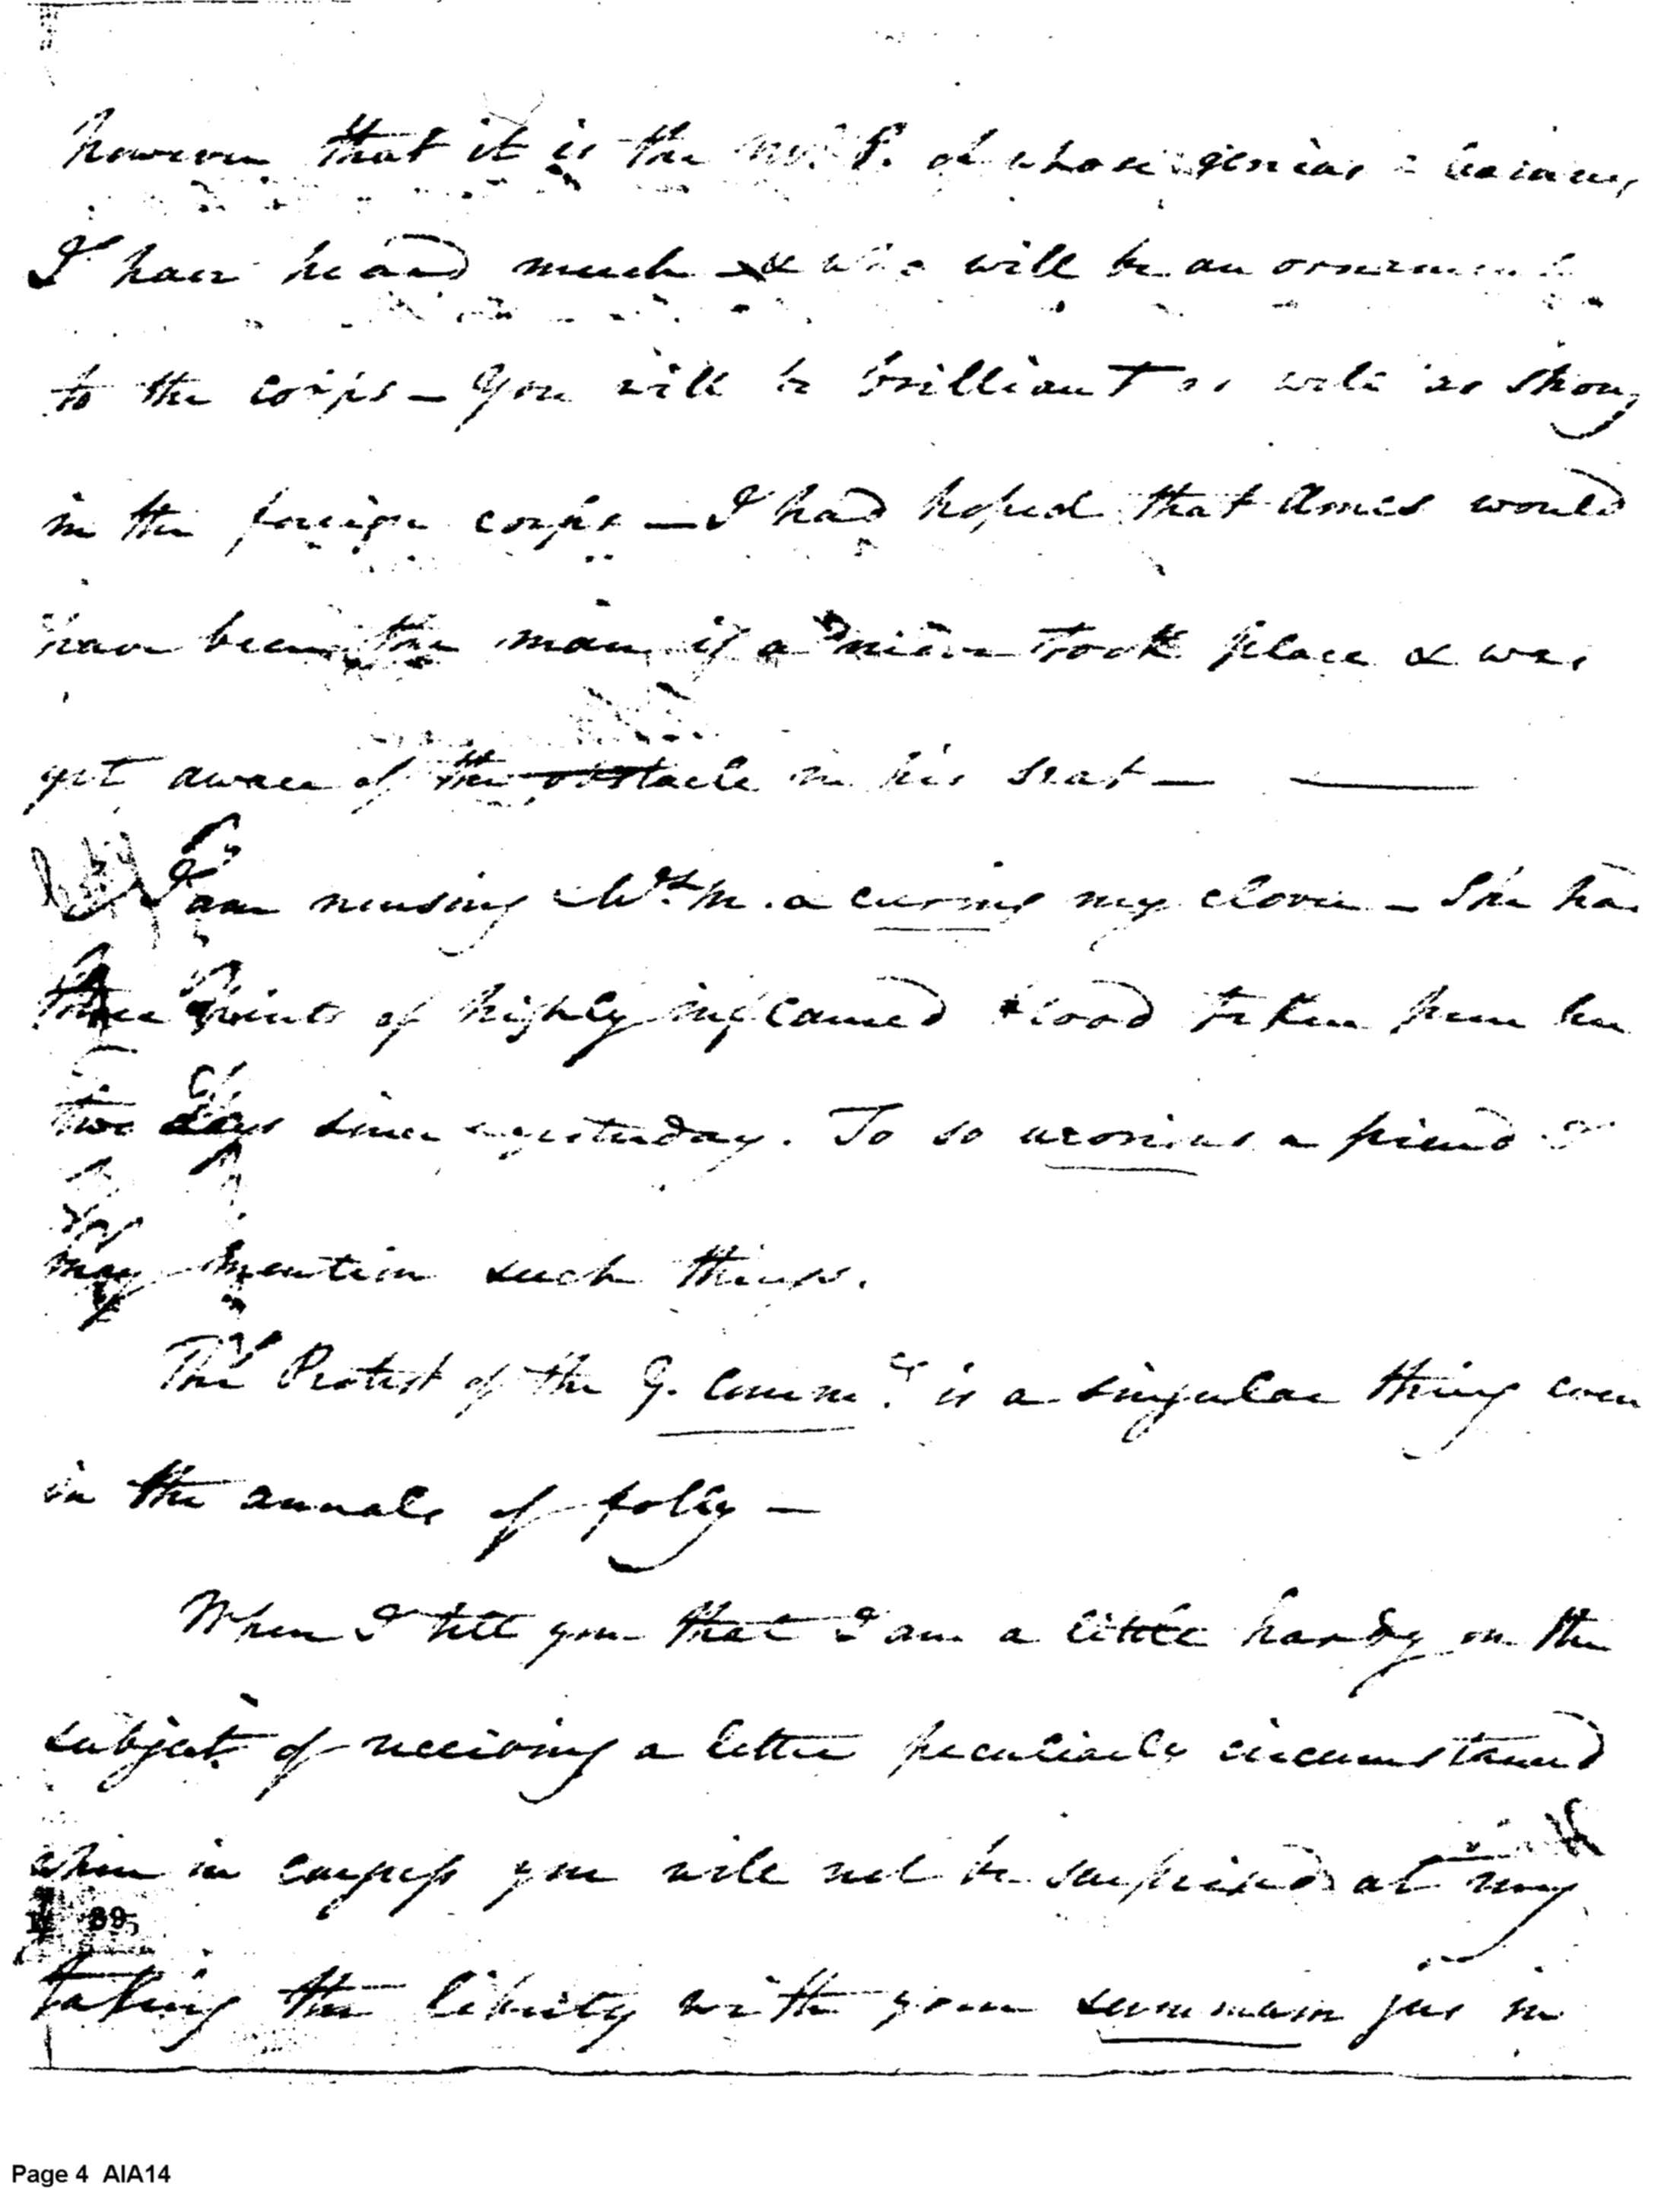 however that it is the Mr. P. of whose genius & learning
I have heard much & who will be an ornament
to the corps — You will be brilliant as well as strong
in the foreign corps — I had hoped that Ames would
have been the man if a took place & was
yet aware of the obstacle in his seat —
I am nursing M. & curing my clover — She has
three Points of highly inflamed blood taken from her
two days since & yesterday. To so uxorious a friend I
may mention such things.
The Protest of the G. Comm.r is a singular thing even
in the annals of folly —
When I tell you that I am a little hardy on the
subject of receiving a letter peculiarly circumstanced
when in congress you will not be surprised at my
89
taking the liberty with your summum jus in
Page 4 AIA14